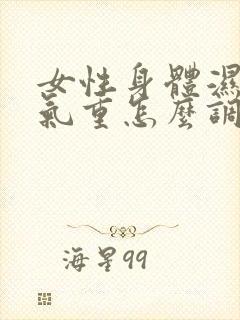 女性身體濕
氣重怎麼調
海星99